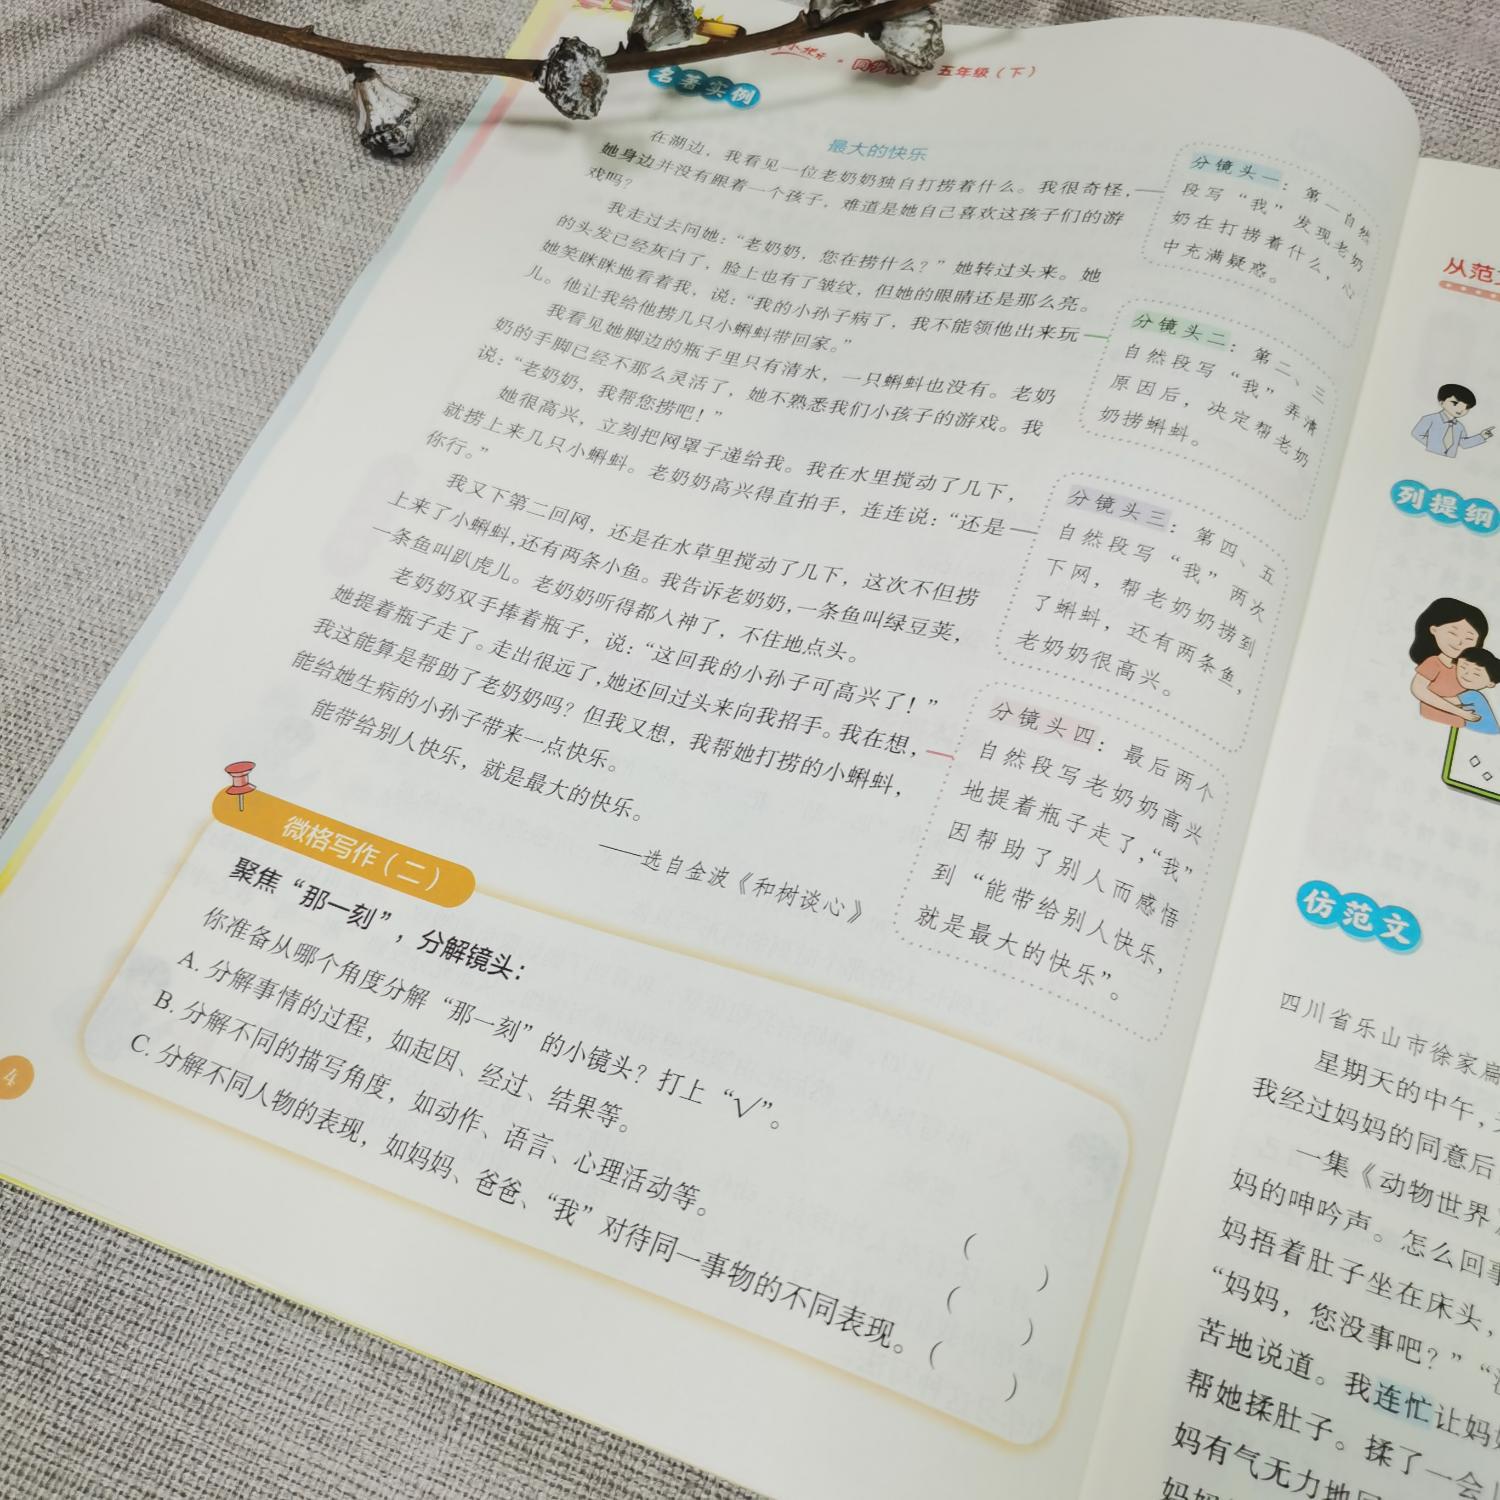 五年级（下）
名著实例
最大的快乐
在湖边，我看见一位老奶奶独自打捞着什么。我很奇怪，
她身边并没有跟着一个孩子，难道是她自己喜欢这孩子们的游
戏吗？
我走过去问她：“老奶奶，您在捞什么？”她转过头来。她
的头发已经灰白了，脸上也有了皱纹，但她的眼睛还是那么亮。
她笑眯眯地看着我，说：“我的小孙子病了，我不能领他出来玩
儿。他让我给他捞几只小蝌蚪带回家。”
我看见她脚边的瓶子里只有清水，一只蝌蚪也没有。老奶
奶的手脚已经不那么灵活了，她不熟悉我们小孩子的游戏。我
说：“老奶奶，我帮您捞吧！”
她很高兴，立刻把网罩子递给我。我在水里搅动了几下，
就捞上来几只小蝌蚪。老奶奶高兴得直拍手，连连说：“还是
你行。”
我又下第二回网，还是在水草里搅动了几下，这次不但捞
上来了小蝌蚪，还有两条小鱼。我告诉老奶奶，一条鱼叫绿豆荚，
一条鱼叫趴虎儿。老奶奶听得都入神了，不住地点头。
老奶奶双手捧着瓶子，说：“这回我的小孙子可高兴了！”
她提着瓶子走了。走出很远了，她还回过头来向我招手。我在想，
我这能算是帮助了老奶奶吗？但我又想，我帮她打捞的小蝌蚪，
能给她生病的小孙子带来一点快乐。
能带给别人快乐，就是最大的快乐。
——选自金波《和树谈心》
分镜头一：第一自然
段写“我”发现老奶
奶在打捞着什么，心
中充满疑惑。
分镜头二：第二、三
自然段写“我”弄清
原因后，决定帮老奶
奶捞蝌蚪。
分镜头三：第四、五
自然段写“我”两次
下网，帮老奶奶捞到
了蝌蚪，还有两条鱼，
老奶奶很高兴。
分镜头四：最后两个
自然段写老奶奶高兴
地提着瓶子走了，“我”
因帮助了别人而感悟
到“能带给别人快乐，
就是最大的快乐”。
微格写作（二）
聚焦“那一刻”，分解镜头：
你准备从哪个角度分解“那一刻”的小镜头？打上“√”。
A. 分解事情的过程，如起因、经过、结果等。 （ ）
B. 分解不同的描写角度，如动作、语言、心理活动等。 （ ）
C. 分解不同人物的表现，如妈妈、爸爸、“我”对待同一事物的不同表现。（ ）
4
从范
列提纲
仿范文
四川省乐山市徐家扁
星期天的中午，
我经过妈妈的同意后
一集《动物世界
妈的呻吟声。怎么回事
妈捂着肚子坐在床头，
“妈妈，您没事吧？”“
苦地说道。我连忙让妈
帮她揉肚子。揉了一会
妈有气无力地
妈妈